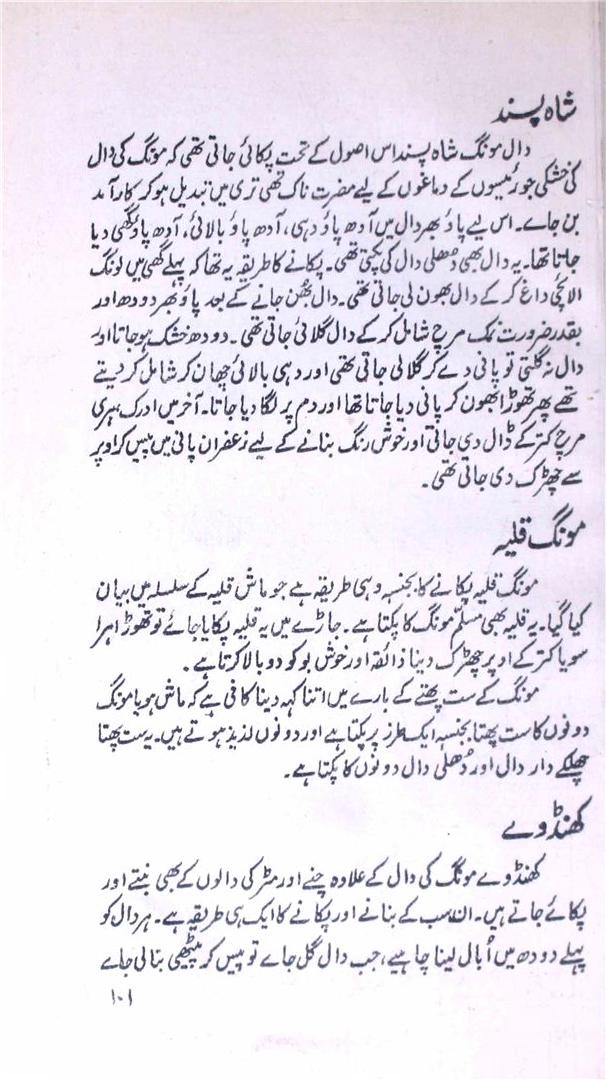 شاہ پسند
دال مونگ شاہ پسند اس اصول کے تحت پکائی جاتی تھی کہ مونگ کی دال
کی خشکی جو رئیسوں کے دماغوں کے لیے مضرت ناک تھی تری میں تبدیل ہو کر کارآمد
بن جاے۔ اس لیے پاؤ بھر دال میں آدھ پاؤ دہی، آدھ پاؤ بالائی، آدھ پاؤ گھی دیا
جاتا تھا۔ یہ دال بھی دُھلی دال کی پکتی تھی۔ پکانے کا طریقہ یہ تھا کہ پہلے گھی میں لونگ
الائچی داغ کر کے دال بھون لی جاتی تھی۔ دال بھُن جانے کے بعد پاؤ بھر دودھ اور
بقدر ضرورت نمک مرچ شامل کر کے دال گلائی جاتی تھی۔ دودھ خشک ہو جاتا اور
دال نہ گلتی تو پانی دے کر گلائی جاتی تھی اور دہی بالائی چھان کر شامل کر دیتے
تھے پھر تھوڑا بھون کر پانی دیا جاتا تھا اور دم پر لگا دیا جاتا۔ آخر میں ادرک ہری
مرچ کتر کے ڈال دی جاتی اور خوش رنگ بنانے کے لیے زعفران پانی میں پیس کر اوپر
سے چھڑک دی جاتی تھی۔
مونگ قلیہ
مونگ قلیہ پکانے کا بجنسہ وہی طریقہ ہے جو ماش قلیہ کے سلسلہ میں بیان
کیا گیا۔ یہ قلیہ بھی مسلّم مونگ کا پکتا ہے۔ جاڑے میں یہ قلیہ پکایا جائے تو تھوڑا ہرا
سویا کتر کے اوپر چھڑک دینا ذائقہ اور خوش بو کو دوبالا کرتا ہے۔
مونگ کے ست پھتے کے بارے میں اتنا کہہ دینا کافی ہے کہ ماش ہو یا مونگ
دونوں کا ست پھتا بجنسہ ایک طرز پر پکتا ہے اور دونوں لذیذ ہوتے ہیں۔ یہ ست پھتا
چھلکے دار دال اور دُھلی دال دونوں کا پکتا ہے۔
کھنڈوے
کھنڈوے مونگ کی دال کے علاوہ چنے اور مٹر کی دالوں کے بھی بنتے اور
پکائے جاتے ہیں۔ ان سب کے بنانے اور پکانے کا ایک ہی طریقہ ہے۔ ہر دال کو
پہلے دودھ میں اُبال لینا چاہیے، جب دال گل جاے تو پیس کر پیٹھی بنا لی جاے
۱۰۱